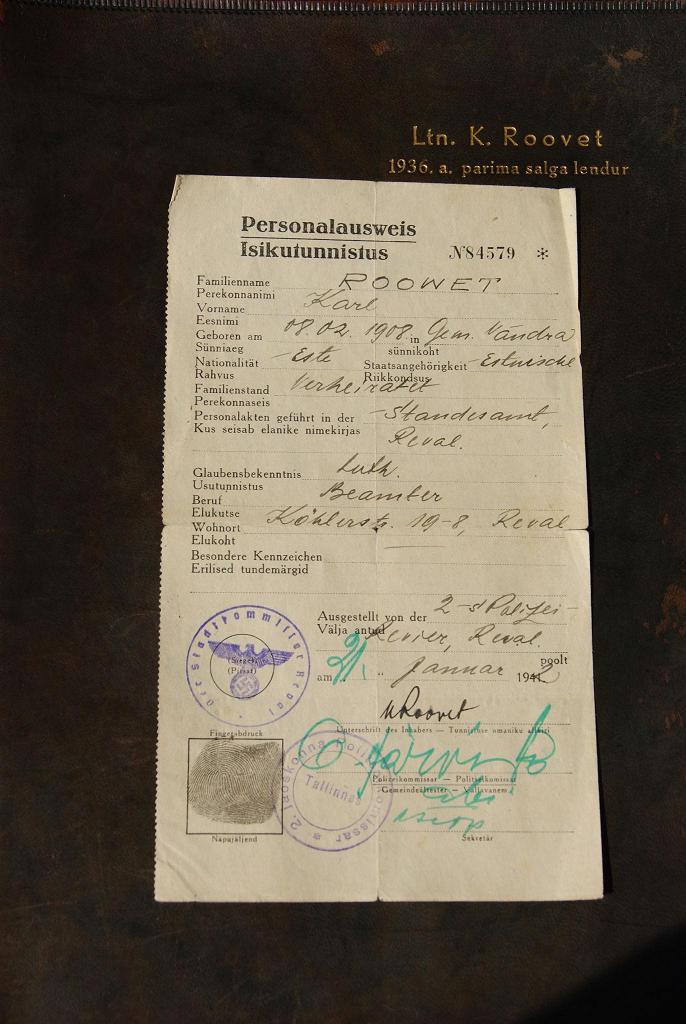 Ltn. K. Roovet
1936. a. parima salga lendur
Personalausweis
Isikutunnistus
№84579 *
Familienname ROOWET
Perekonnanimi
Vorname Karl
Eesnimi
Geboren am 08.02.1908. in Gem. Vändra
Sünniaeg sünnikoht
Nationalität Este Staatsangehörigkeit Estnische
Rahvus Riikkondsus
Familienstand Verheiratet
Perekonnaseis
Personalakten geführt in der Standesamt,
Kus seisab elanike nimekirjas Reval.
Glaubensbekenntnis Luth.
Usutunnistus
Beruf Beamter
Elukutse
Wohnort Köhlerstr. 19-8, Reval
Elukoht
Besondere Kennzeichen
Erilised tundemärgid
Ausgestellt von der 2-s Polizei-
Välja antud Revier, Reval.
am 21. " Januar 1942 poolt
Der Stadtkommissar Reval
(Siegel)
(Pitsat)
KRoovet
Unterschrift des Inhabers — Tunnistuse omaniku allkiri
Fingerabdruck
Polizeikommissar — Politseikomissar
Gemeindeältester — Vallavanem
2. jaoskonna Politseikomissar
Tallinnas
Napajäljend
Sekretär